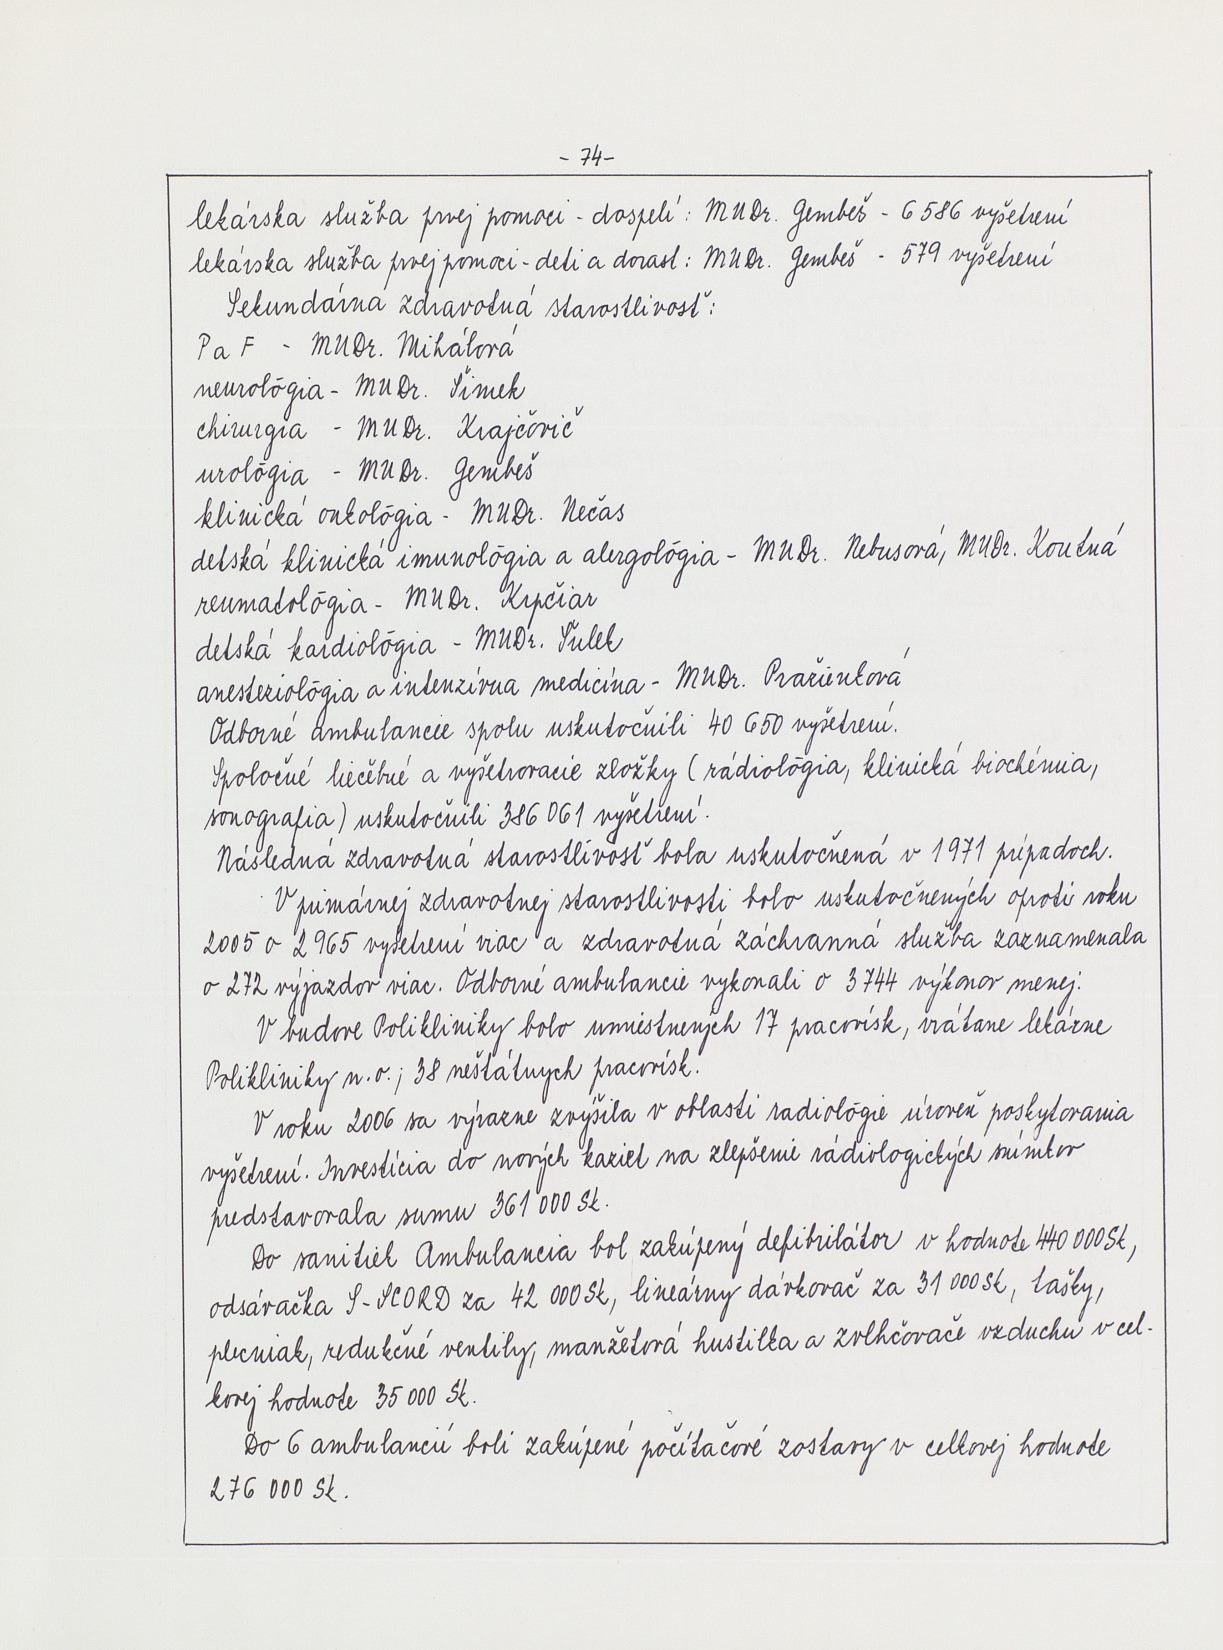 - 74 -
lekárska služba prvej pomoci - dospelí: MUDr. Gembeš - 6 586 vyšetrení
lekárska služba prvej pomoci - deti a dorast: MUDr. Gembeš - 579 vyšetrení
Sekundárna zdravotná starostlivosť:
P a F - MUDr. Mihálová
neurológia - MUDr. Šimek
chirurgia - MUDr. Krajčovič
urológia - MUDr. Gembeš
klinická onkológia - MUDr. Nečas
detská klinická imunológia a alergológia - MUDr. Nebusová, MUDr. Koutná
reumatológia - MUDr. Krpčiar
detská kardiológia - MUDr. Šulek
anesteziológia a intenzívna medicína - MUDr. Pražienková
Odborné ambulancie spolu uskutočnili 40 650 vyšetrení.
Spoločné liečebné a vyšetrovacie zložky (rádiológia, klinická biochémia,
sonografia) uskutočnili 386 061 vyšetrení.
Následná zdravotná starostlivosť bola uskutočnená v 1971 prípadoch.
V primárnej zdravotnej starostlivosti bolo uskutočnených oproti roku
2005 o 2 965 vyšetrení viac a zdravotná záchranná služba zaznamenala
o 272 výjazdov viac. Odborné ambulancie vykonali o 3 744 výkonov menej.
V budove Polikliniky bolo umiestnených 17 pracovísk, vrátane lekárne
Polikliniky n.o.; 38 neštátnych pracovísk.
V roku 2006 sa výrazne zvýšila v oblasti radiológie úroveň poskytovania
vyšetrení. Investícia do nových kaziet na zlepšenie rádiologických snímkov
predstavovala sumu 361 000 Sk.
Do sanitiek Ambulancia bol zakúpený defibrilátor v hodnote 440 000 Sk,
odsávačka S-SCORD za 42 000 Sk, lineárny dávkovač za 31 000 Sk, tašky,
plecniak, redukčné ventily, manžetová hustilka a zvlhčovače vzduchu v cel-
kovej hodnote 35 000 Sk.
Do 6 ambulancií boli zakúpené počítačové zostavy v celkovej hodnote
276 000 Sk.